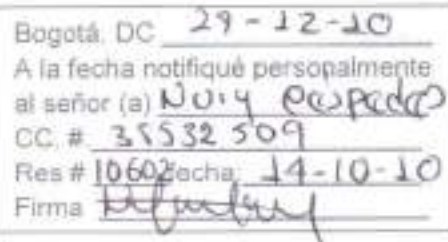 Bogotá, DC 29-12-10
A la fecha notifiqué personalmente
al señor (a) Nury
CC. # 35532509
Res # 10602 fecha: 14-10-10
Firma